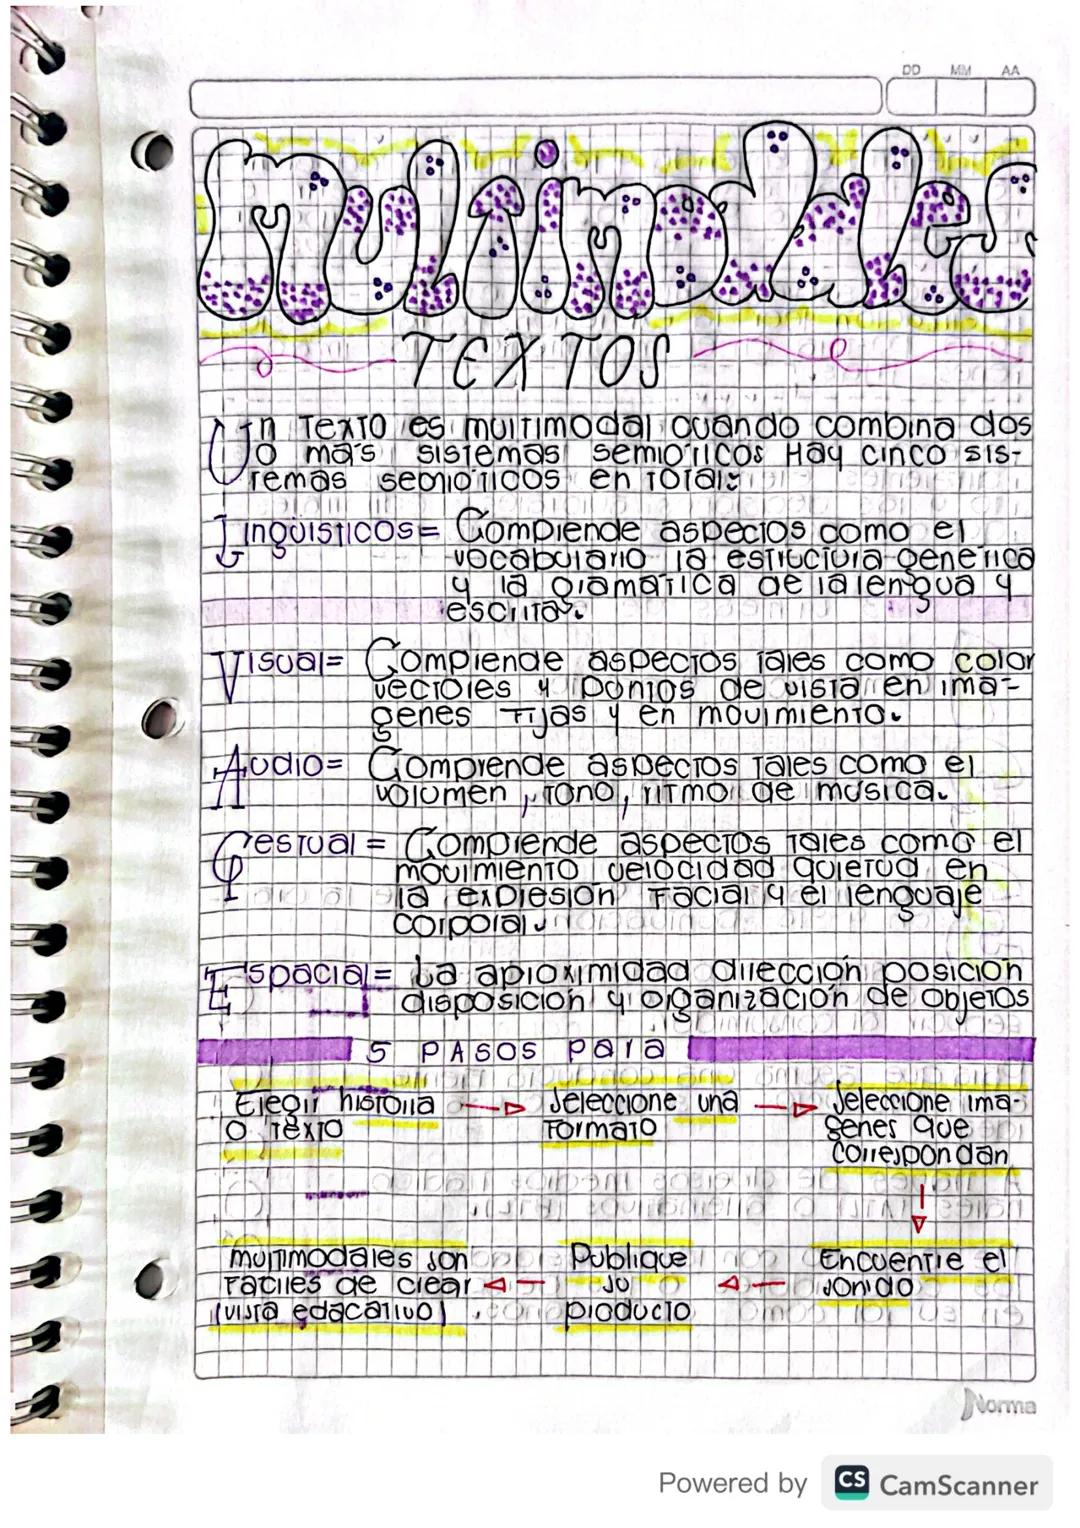 DD MM AA
Multimodales
TEXTOS
Un Texto es multimodal cuando combina dos
o más sistemas semioticos Hay cinco sis-
temas semioticos en total:
Linguisticos= Comprende aspectos como el
vocabulario la estructura generica
y la gramatica de la lengua y
escrita.
Visual= Comprende aspectos tales como color
vectores y puntos de vista en ima-
genes Fijas y en movimiento.
Audio= Comprende aspectos tales como el
volumen, tono, ritmo de musica.
Gestual= Comprende aspectos tales como el
movimiento velocidad quietud en
la expresión Facial y el lenguaje
corporal.
Espacial= La aproximidad dirección posición
disposición y organización de objetos
5 PASOS para
Elegir historia → Seleccione una → Seleccione ima-
o texto formato genes que
correspondan
multimodales son Publique Encuentre el
Faciles de crear ← su ← sonido
(vista edacativo) producto
Norma
Powered by CS CamScanner